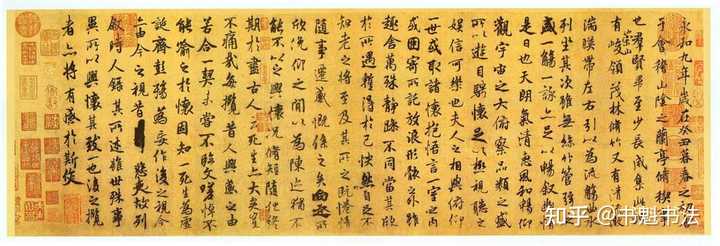 永和九年歲在癸丑暮春之初會
于會稽山陰之蘭亭脩稧事
也群賢畢至少長咸集此地
有崇山峻領茂林脩竹又有清流激
湍暎帶左右引以為流觴曲水
列坐其次雖無絲竹管弦之
盛一觴一詠亦足以暢敘幽情
是日也天朗氣清惠風和暢仰
觀宇宙之大俯察品類之盛
所以遊目騁懷足以極視聽之
娛信可樂也夫人之相與俯仰
一世或取諸懷抱悟言一室之內
或因寄所託放浪形骸之外雖
趣舍萬殊靜躁不同當其欣
於所遇暫得於己怏然自足不
知老之將至及其所之既惓情
隨事遷感慨係之矣向之所
欣俛仰之閒以為陳迹猶不
能不以之興懷況脩短隨化終
期於盡古人云死生亦大矣豈
不痛哉每攬昔人興感之由
若合一契未嘗不臨文嗟悼不
能喻之於懷固知一死生為虛
誕齊彭殤為妄作後之視今
亦由今之視昔悲夫故列
敘時人錄其所述雖世殊事
異所以興懷其致一也後之攬
者亦將有感於斯文
知乎 @书魁书法